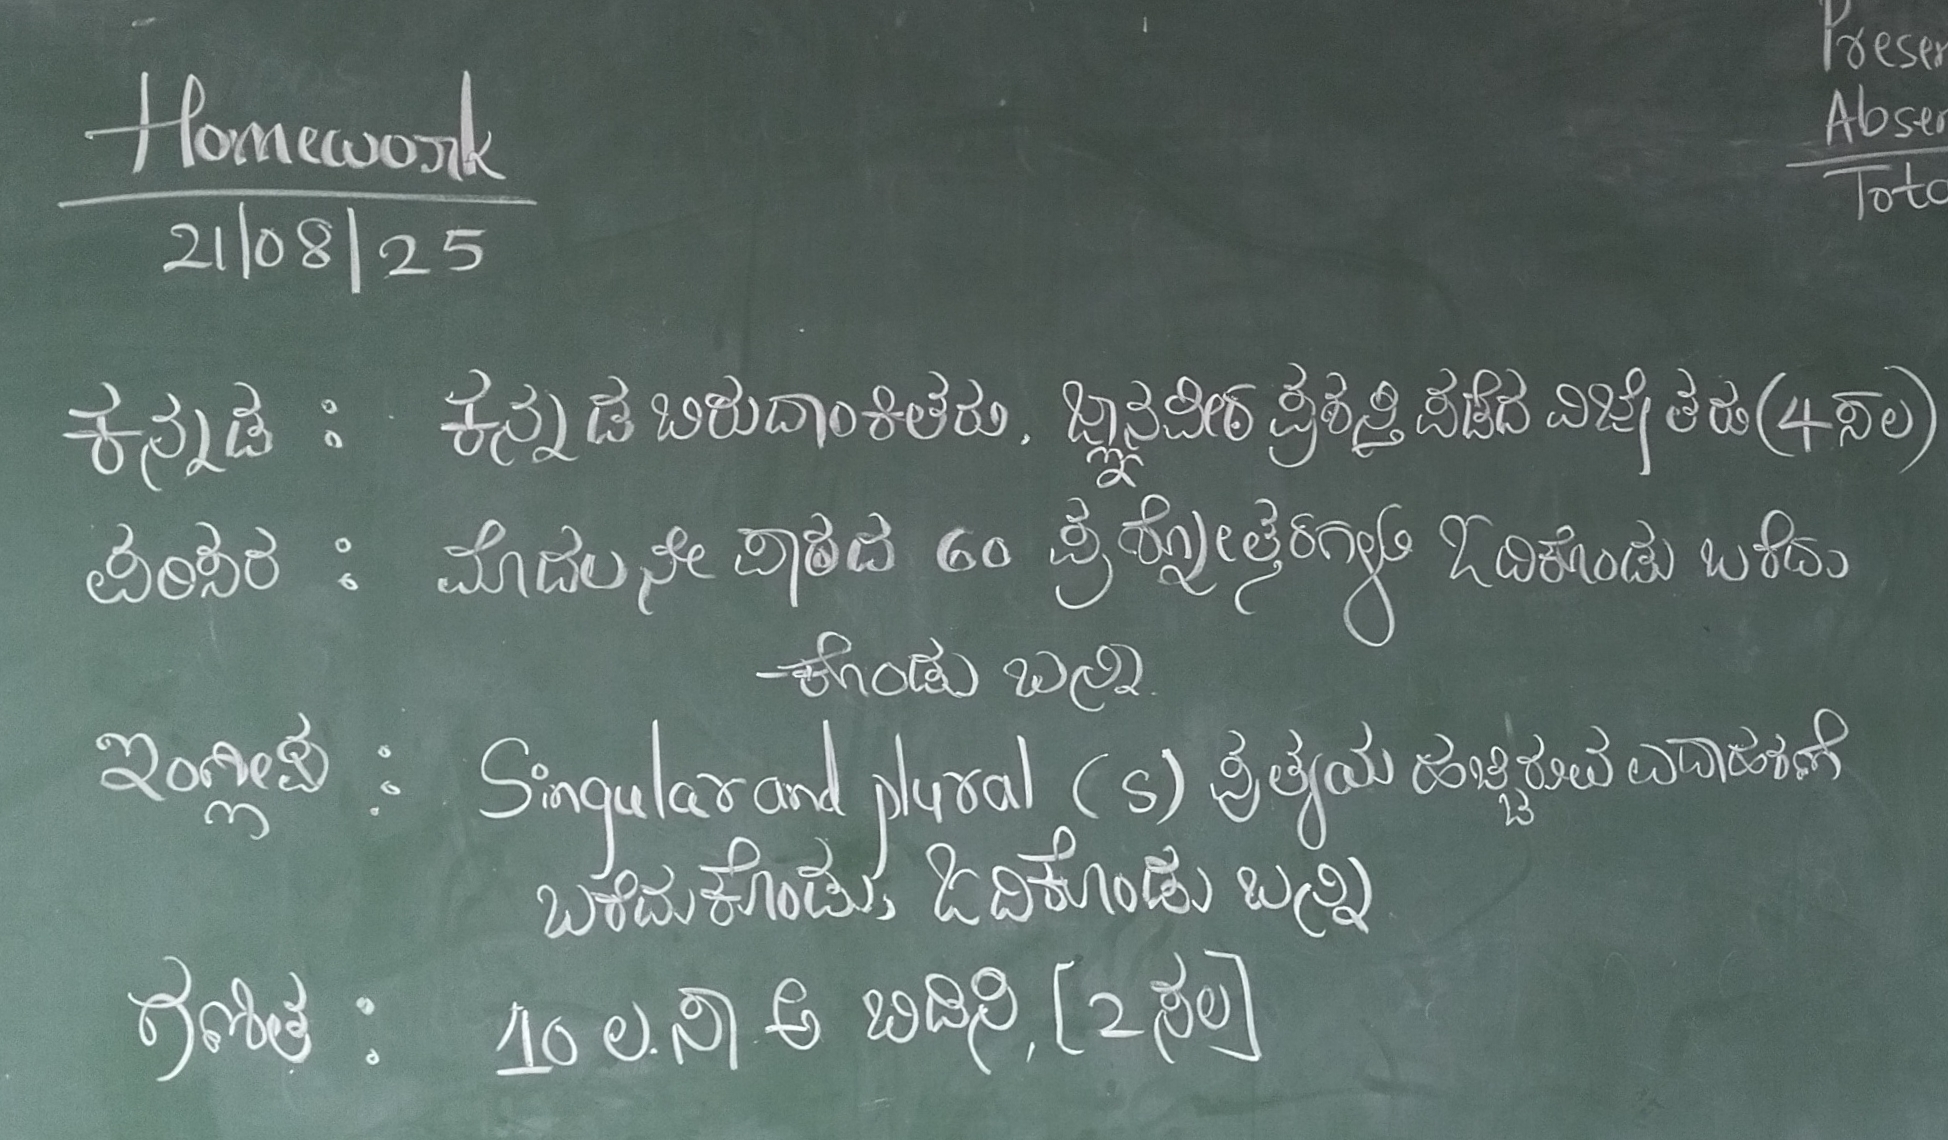 Homework
21/08/25
Presen
Absen
Tota
ಕನ್ನಡ : ಕನ್ನಡ ಬಿರುದಾಂಕಿತರು. ಜ್ಞಾನಪೀಠ ಪ್ರಶಸ್ತಿ ಪಡೆದ ವಿಜೇತರು (4 ಸಲ)
ಪರಿಸರ : ಮೊದಲನೇ ಪಾಠದ 60 ಪ್ರಶ್ನೋತ್ತರಗಳು ಓದಿಕೊಂಡು ಬರೆದು
-ಕೊಂಡು ಬನ್ನಿ.
ಇಂಗ್ಲೀಷ : Singular and plural (s) ಪ್ರತ್ಯಯ ಹಚ್ಚಿರುವ ಉದಾಹರಣೆ
ಬರೆದುಕೊಂಡು, ಓದಿಕೊಂಡು ಬನ್ನಿ
ಗಣಿತ : 10 ಲ.ಸಾ.ಅ ಬಿಡಿಸಿ, [2 ಸಲ]